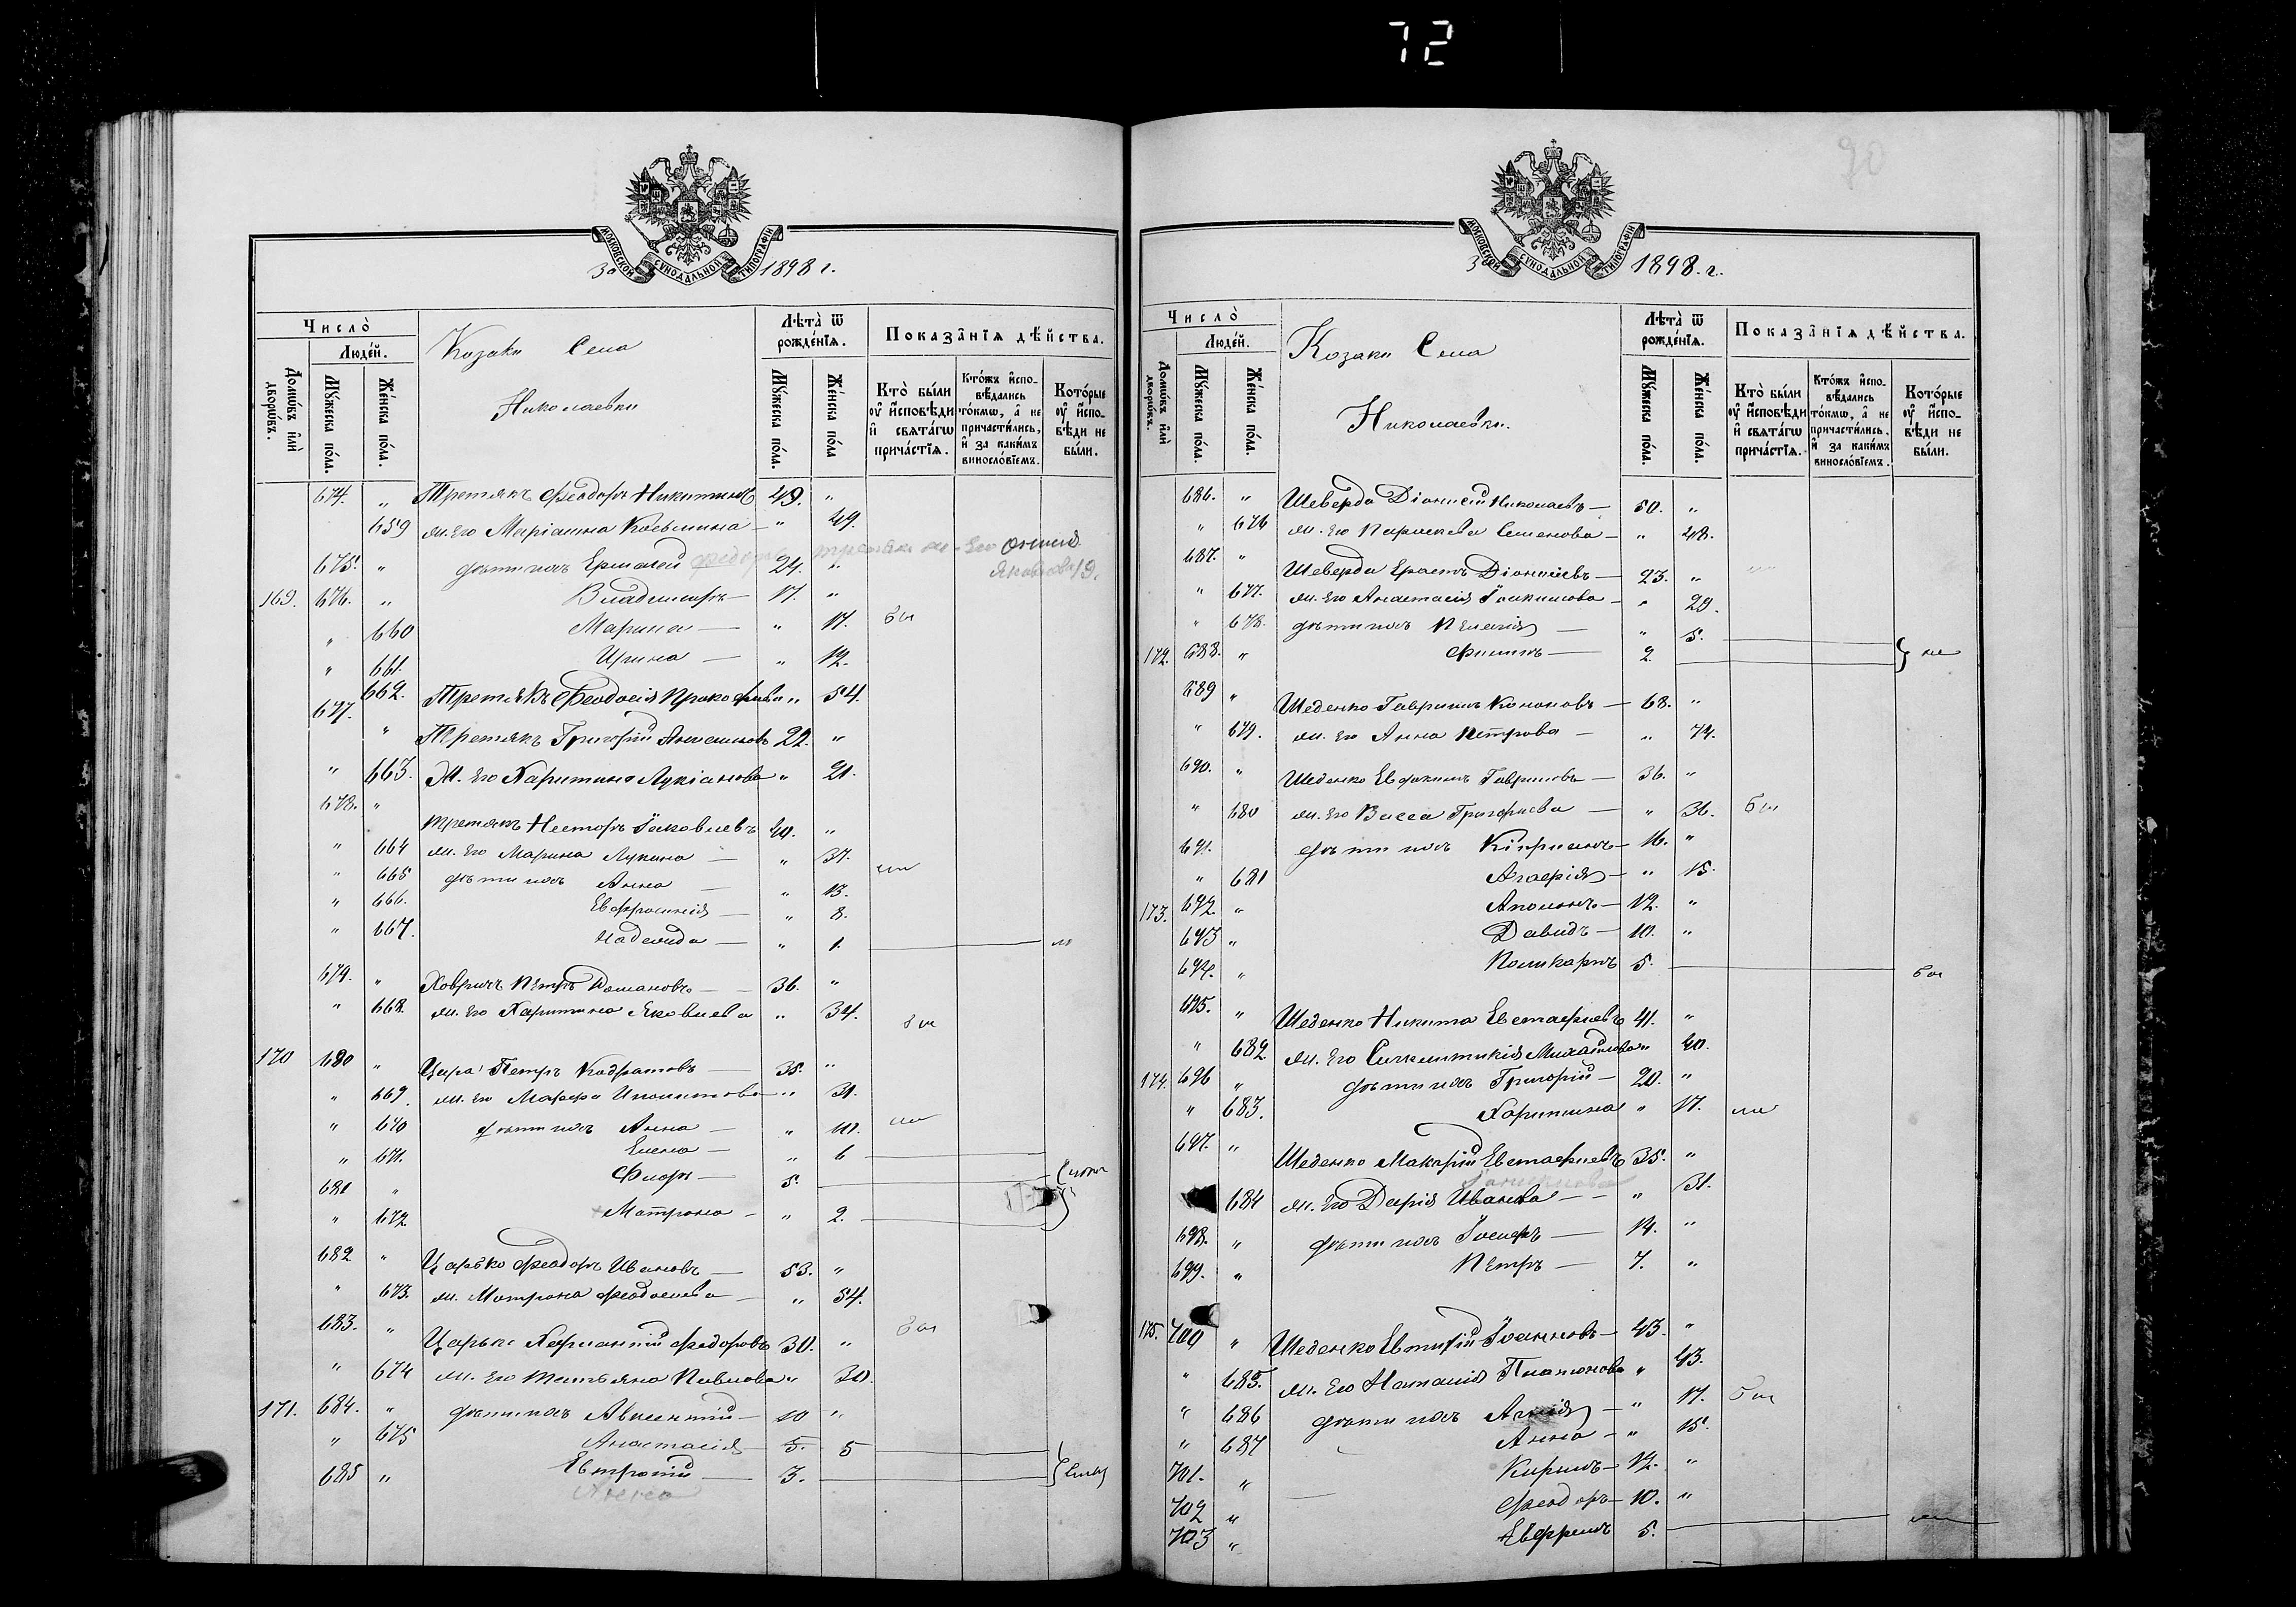 72
МОСКОВСКОЙ СУНОДАЛЬНОЙ ТИПОГРАФІИ
За 1898 г.
Число̀
Людéй.
Домѡ́въ и҆лѝ дворѡ́въ.
Мꙋ́жеска по́ла.
Же́нска по́ла.
Козаки Села
Николаевки
Лѣ́та ѿ рожде́нїѧ.
Мꙋ́жеска по́ла.
Же́нска по́ла
Показа̑нїѧ дѣ́йства.
Кто̀ бы́ли ᲂу҆ и҆сповѣди и҆ свѧта́гѡ причáстїѧ.
Кто́жъ и҆спо-вѣдались то́кмѡ, а҆ не причасти́лись, и҆ за каки́мъ винослóвїемъ.
Кото́рые ᲂу҆ и҆спо-вѣди не бы́ли.
674. „ Третякъ Феодоръ Никитинъ 49. „
659 ж. Его Маріанна Косьмина — „ 49.
675. „ дѣти ихъ Ермолай 24. „
169. 676. „ Владиміръ — 17. „
„ 660 Марина — „ 17. бы
„ 661. Ирина — „ 12.
662. Третякъ Феодосія Прокофьева „ 54.
677. „ Третякъ Григорій 22. „
„ 663. Ж. Его Харитина Лукіанова „ 21.
678. „ Третякъ Несторъ Іаковлевъ 40. „
„ 664 ж. Его Марина Лукина — „ 37.
„ 665 дѣти ихъ Анна — „ 13.
„ 666. Евфросинія — „ 8.
„ 667. Надежда — „ 1.
679. „ Ховричъ Петръ Романовъ — 36. „
„ 668. ж. Его Харитина Яковлева „ 34.
170 680 „ Цира Петръ Кодратовъ — 35. „
„ 669. ж. Его Марфа Иполитова „ 31.
„ 670 дѣти ихъ Анна — „ 10.
„ 671. Елена — „ 6
681 „ Флоръ — 5.
„ 672 Матрона — „ 2.
682 „ Царько Феодоръ Ивановъ — 53. „
„ 673. ж. Матрона Феодосіева — „ 54.
683. „ Царько Харлампій Федоровъ 30. „
„ 674 ж. Его Татьяна Павлова „ 30.
171. 684. „ дѣти ихъ Авксентій — 10 „
„ 675 Анастасія 5. 5
685 „ Евтропій — 3.
90
МОСКОВСКОЙ СУНОДАЛЬНОЙ ТИПОГРАФІИ
За 1898. г.
Число̀
Людéй.
Домѡ́въ и҆лѝ дворѡ́въ.
Мꙋ́жеска по́ла.
Же́нска по́ла.
Козаки Села
Николаевки.
Лѣ́та ѿ рожде́нїѧ.
Мꙋ́жеска по́ла.
Же́нска по́ла.
Показа̑нїѧ дѣ́йства.
Кто̀ бы́ли ᲂу҆ и҆сповѣди и҆ свѧта́гѡ причáстїѧ.
Кто́жъ и҆спо-вѣдались то́кмѡ, а҆ не причасти́лись, и҆ за каки́мъ винослóвїемъ.
Кото́рые ᲂу҆ и҆спо-вѣди не бы́ли.
686. „ Шеверда Діонисій Николаевъ — 50. „
„ 676 ж. Его Параскева Семенова — „ 48.
687. „ Шеверда Ерастъ Діонисіевъ — 23. „
„ 677. ж. Его Анастасія Іоакимова — „ 20.
„ 678. дѣти ихъ Пелагія — „ 5.
172. 688. „ Филипъ — 2.
689 „ Шеденко Гавріилъ Кононовъ — 68. „
„ 679. ж. Его Анна Петрова — „ 74.
690. „ Шеденко Евфимъ Гавриловъ — 36. „
„ 680 ж. Его Васса Григорьева — „ 36. бы
691. дѣти ихъ Кіпріанъ — 16. „
„ 681 Агафія — „ 15.
173. 692. „ Аполонъ — 12. „
693 „ Давидъ — 10. „
694. „ Поликарпъ 5.
695. „ Шеденко Никита Евстафіевъ 41. „
„ 682 ж. Его Синклитикія Михайлова „ 40.
174. 696 „ дѣти ихъ Григорій — 20. „
„ 683. Харитина „ 17.
697. „ Шеденко Макарій Евстафіевъ 35. „
684 ж. Его Дарія Иванова — „ 31.
698. „ дѣти ихъ Іосифъ — 14. „
699. „ Петръ — 7. „
175. 700 „ Шеденко Евтихій Іоанновъ — 43. „
„ 685. ж. Его Наталія Платонова „ 43.
„ 686 дѣти ихъ — „ 17.
„ 687 Анна — „ 15.
701. „ Кирилъ — 12. „
702 „ Феодоръ — 10. „
703 „ Евфремъ 5.